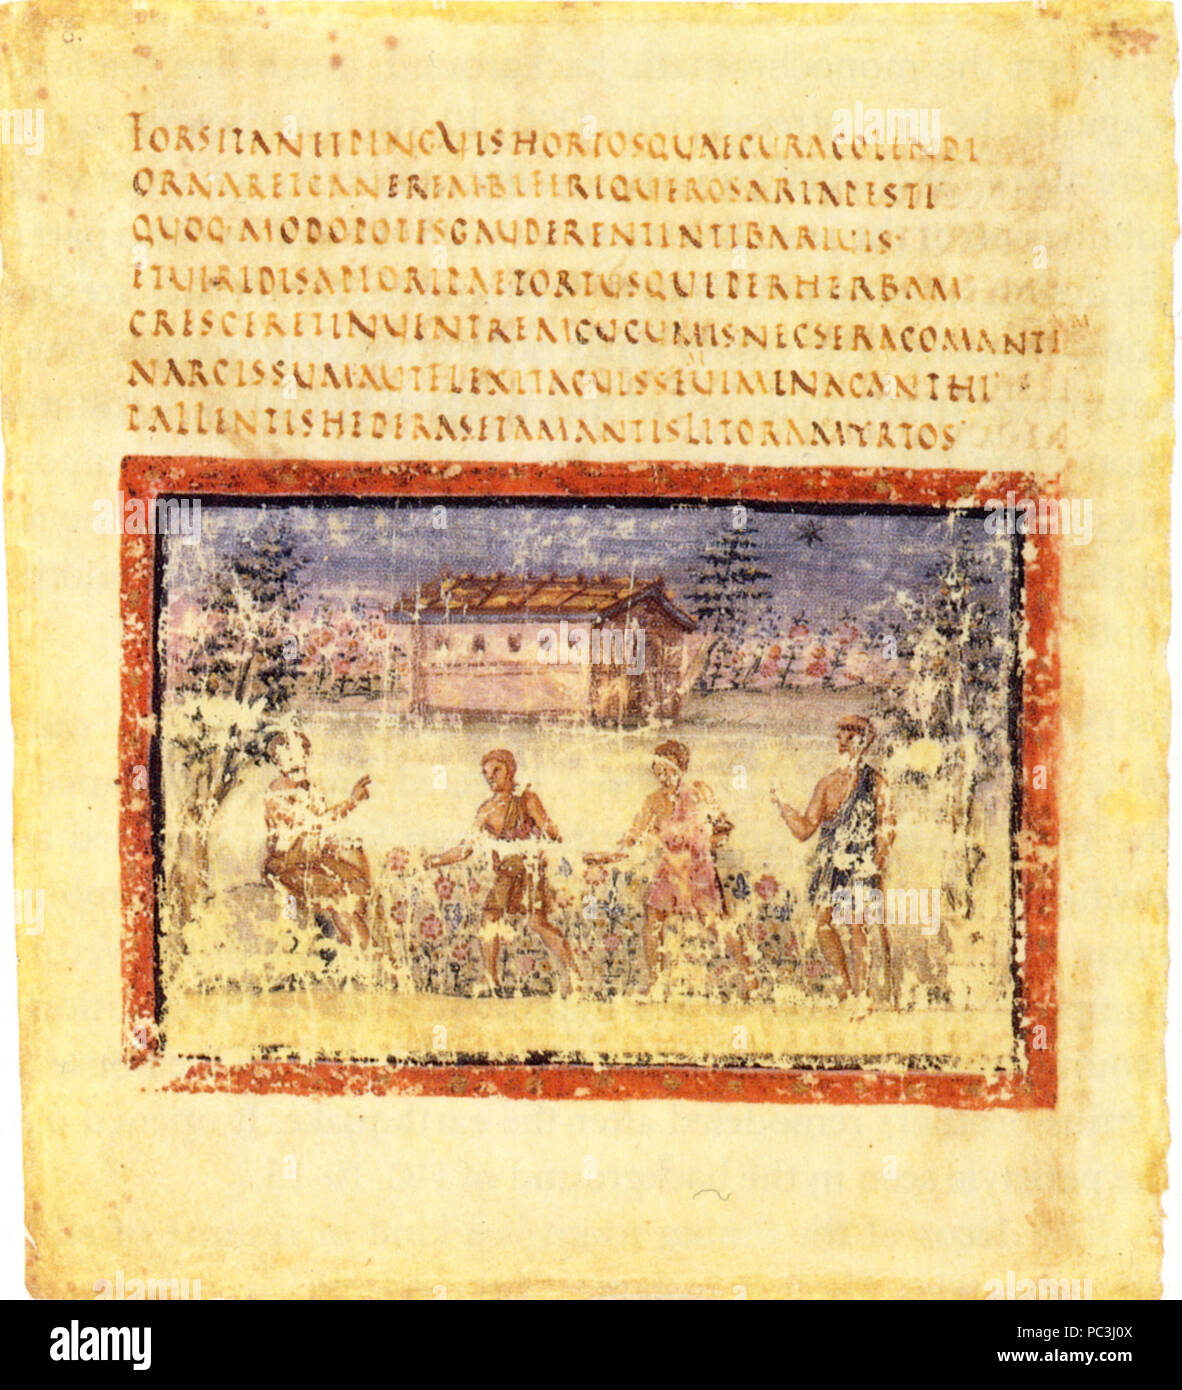 FORSITANETPINGUISHORTOSQUAECURACOLENDI
ORNARETCANEREMBIFERIQUEROSARIAPESTI
QUOQ·MODOPOTISGAUDERENTINTIBARIUIS·
ETUIRIDISAPIORIPAETORTUSQUEPERHERBAM
CRESCERETINUENTREMCUCUMISNECSERACOMANTE
NARCISSUMAUTFLEXITACUISSEUIMINACANTHI
PALLENTISHEDERASETAMANTISLITORAMYRTOS
alamy
Image ID: PC3J0X
www.alamy.com